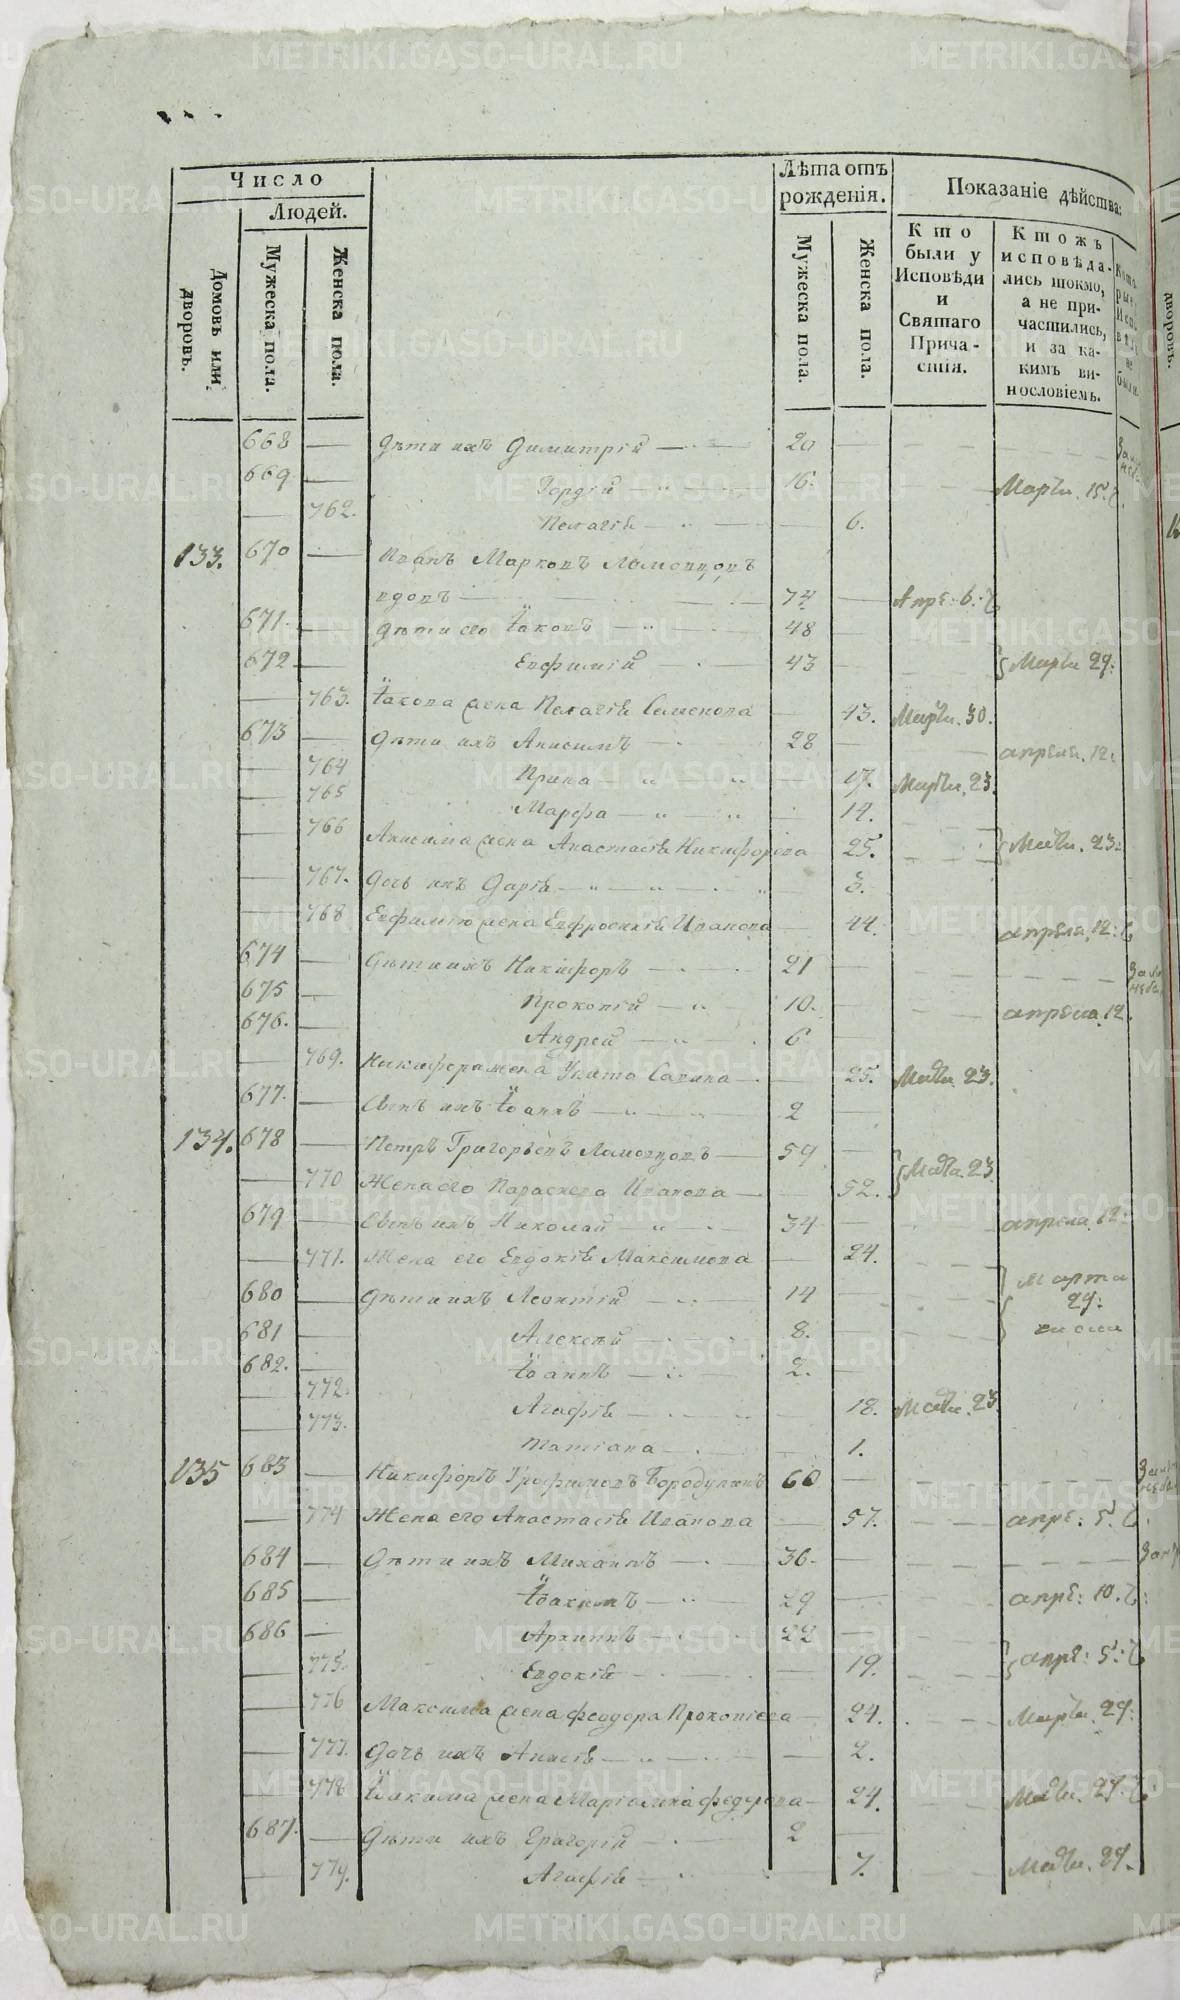 Число
Людей.
Домовъ или дворовъ.
Мужеска пола.
Женска пола.
Лѣта отъ рожденія.
Мужеска пола.
Женска пола.
Показаніе дѣйства:
Кто были у Исповѣди и Святаго Прича-стія.
Ктожъ исповѣда-лись токмо, а не при-частились, и за ка-кимъ ви-нословіемъ.
668 — Дѣти ихъ Димитрій — 20
669 — Гордій — 16. Марта. 15.
— 762. Пелагіѣ — 6.
133. 670 — Иванъ Марковъ Ломовцовъ
вдовъ — 74 — Апре: 6.
671. — Дѣти его Іаковъ — 48 —
672 — Евфимій — 43 — Марта 29:
— 763. Іакова жена Пелагіѣ Семенова — 43. Марта. 30.
673 — Дѣти ихъ Анисимъ — 28 — апреля. 12
— 764 Ирина — 17. Марта. 23.
— 765 Марфа — 14.
— 766 Анисима жена Анастасіѣ Никифорова 25. Марта. 23:
— 767. Дочь ихъ Даріѣ — 3.
— 768 Евфимію жена Евфросиніѣ Иванова — 44. апреля. 12:
674 — Дѣти ихъ Никифоръ — 21 —
675 — Прокопій — 10. — апреля. 12.
676. — Андрей — 6 —
— 769. Никифора жена Улита Савина — 25. Марта. 23.
677. — Сынъ ихъ Іоаннъ — 2 —
134. 678 — Петръ Григорьевъ Ломовцовъ — 59 — Марта. 23
— 770 Жена его Параскева Иванова — 52.
679 — Сынъ ихъ Николай — 34 — апреля. 12:
— 771. Жена его Евдокіѣ Максимова — 24.
680 — Дѣти ихъ Леонтій — 14 — Марта
29:
681 — Алексѣй — 8. — числа
682. — Іоаннъ — 2. —
— 772. Агафіѣ — 18. Марта. 23.
— 773. Татіана — 1.
135 683 — Никифоръ Трофимовъ Бородулинъ 60 —
— 774 Жена его Анастасіѣ Иванова — 57. апре: 5.
684 — Дѣти ихъ Михаилъ — 36. —
685 — Іоакимъ — 29 — апре: 10.
686 — Архиппъ — 22 —
— 775. Евдокій — 19. апре: 5:
— 776 Максима жена Феодора Прокопіева — 24. Марта. 29.
— 777. Дочь ихъ Анисіѣ — 2.
— 778 Іоакима жена Маріамна Федорова — 24. Марта. 29.
687. — Дѣти ихъ Григорій — 2 —
— 779. Агафіѣ — 7. Марта. 29.